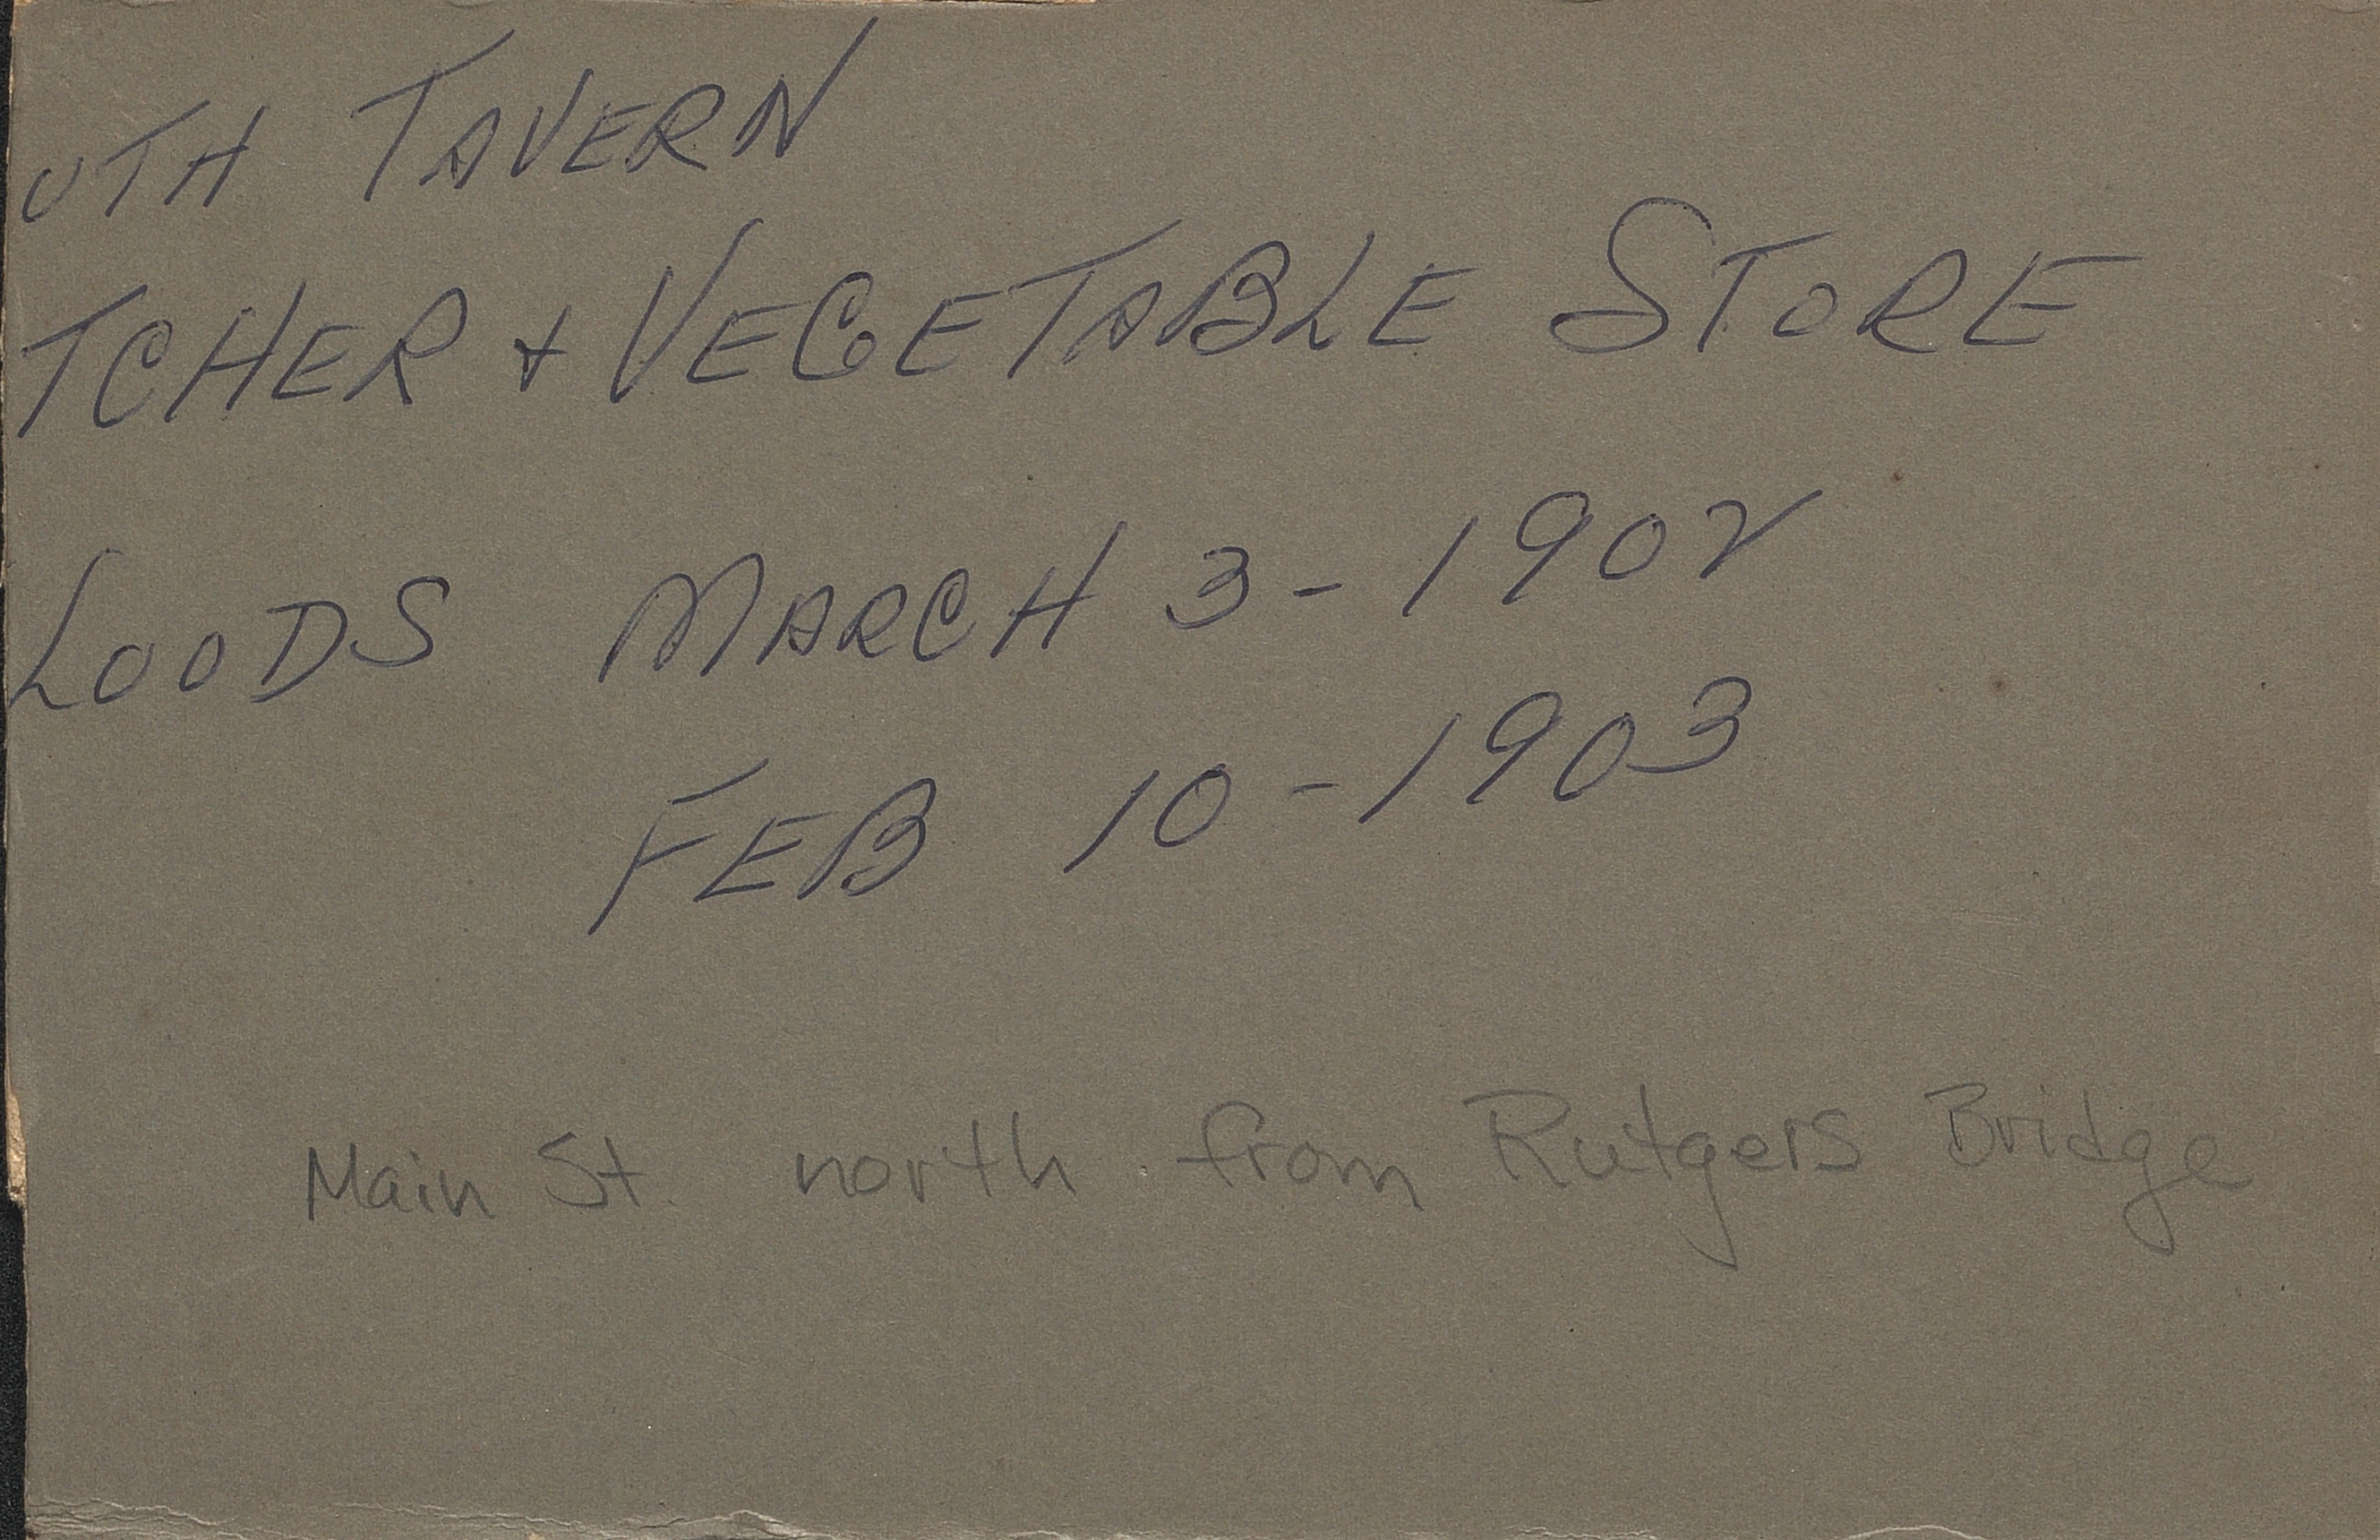 UTH TAVERN
TCHER + VEGETABLE STORE
LOODS MARCH 3 - 1902
FEB 10 - 1903
Main St. north from Rutgers Bridge